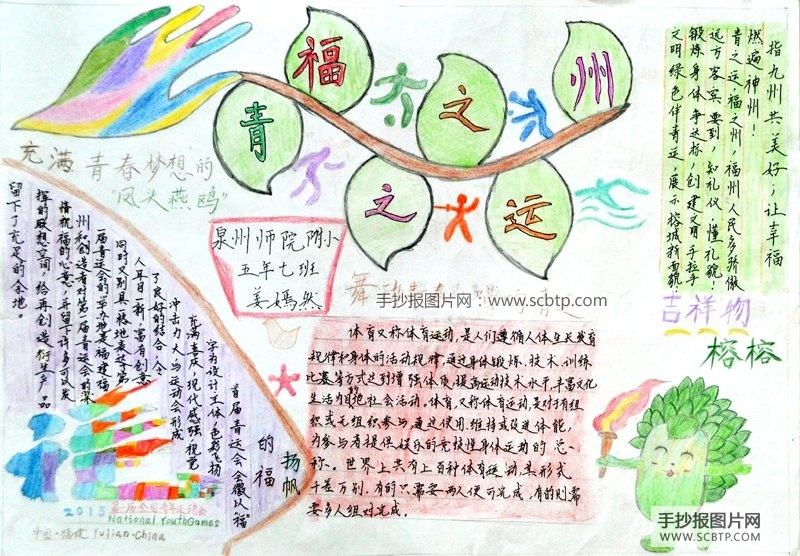 福
州
之
青
之
运
充满青春梦想的
"凤头燕鸥"
泉州师院附小
五年七班
姜嫣然
手抄报图片网：www.scbtp.com
指九州共美好，让幸福
燃遍神州！
青之运，福之州，福州人民多骄傲
远方客宾要到，知礼仪，懂礼貌！
锻炼身体争达标，创建文明手拉手
文明绿色伴青运，展示榕城新面貌。
吉祥物
榕榕
体育又称体育运动，是人们遵循人体生长发育
规律和身体的活动规律，通过身体锻炼、技术、训练
比赛等方式达到增强体质，提高运动技术水平，丰富文化
生活为目的地社会活动。体育，又称体育运动，是对于有组
织或无组织参与，通过使用、维持或改进体能，
为参与者提供娱乐的竞技性身体运动的总
称。世界上共有上百种体育运动，其形式
千差万别，有的只需要两人便可完成，有的则需
要多人组对完成。
扬帆
的福
首届青运会会徽以"福"
字为设计主体，色彩飞扬
充满喜庆，现代感强，视觉
冲击力大，与运动会形成
了良好的结合，令
人耳目一新，富有创意
同时又别具一格地表达了第
一届青运会的举办地是福建福
州和创造者对第一届青运会的深
情祝福的心意，并留下许多可以发
挥的联想空间，给再创造衍生产品
留下了充足的余地。
2015第一届全国青年运动会
National YouthGames
中国·福建 Fujian·China
手抄报图片网
WWW.SCBTP.COM